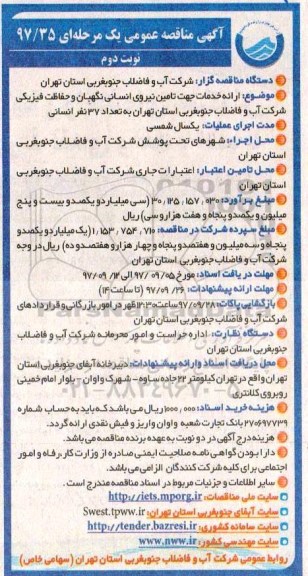 آگهی مناقصه عمومی یک مرحله‌ای ۹۷/۳۵
نوبت دوم
دستگاه مناقصه گزار: شرکت آب و فاضلاب جنوبغربی استان تهران
موضوع: ارائه خدمات جهت تامین نیروی انسانی نگهبان و حفاظت فیزیکی
شرکت آب و فاضلاب جنوبغربی استان تهران به تعداد ۳۷ نفر انسانی
مدت اجرای عملیات: یکسال شمسی
محل اجراء: شهرهای تحت پوشش شرکت آب و فاضلاب جنوبغربی
استان تهران
محل تامین اعتبار: اعتبارات جاری شرکت آب و فاضلاب جنوبغربی
استان تهران
مبلغ برآورد: ۳۰,۱۲۵,۱۵۷,۰۳۰ (سی میلیارد و یکصد و بیست و پنج
میلیون و یکصد و پنجاه و هفت هزار و سی) ریال
مبلغ سپرده شرکت در مناقصه: ۱,۱۵۳,۷۵۴,۷۱۰ (یک میلیارد و یکصدو
پنجاه و سه میلیون و هفتصدو پنجاه و چهار هزار و هفتصدو ده) ریال در وجه
شرکت آب و فاضلاب جنوبغربی استان تهران
مهلت دریافت اسناد: مورخ ۹۷/۰۹/۰۵ الی ۹۷/۰۹/۱۲
مهلت ارائه پیشنهادات: ۹۷/۰۹/۲۶ (تا ساعت ۱۴)
بازگشایی پاکات: ۹۷/۰۹/۲۸ ساعت ۱۳:۳۰ ظهر در امور بازرگانی و قراردادهای
شرکت آب و فاضلاب جنوبغربی استان تهران
دستگاه نظارت: اداره حراست و امور محرمانه شرکت آب و فاضلاب
جنوبغربی استان تهران
محل دریافت اسناد و ارائه پیشنهادات: دبیرخانه آبفای جنوبغربی استان
تهران واقع در تهران کیلومتر ۲۲ جاده ساوه - شهرک واوان - بلوار امام خمینی
روبروی کلانتری
هزینه خرید اسناد: ۱,۰۰۰,۰۰۰ ریال می باشد که باید به حساب شماره
۲۷۰۶۹۷۷۳۹ بانک تجارت شعبه واوان واریز و فیش نقدی ارائه گردد.
هزینه درج آگهی در دو نوبت به عهده برنده مناقصه می باشد.
دارا بودن گواهی نامه صلاحیت ایمنی صادره از وزارت کار، رفاه و امور
اجتماعی برای کلیه شرکت کنندگان الزامی می باشد.
سایر اطلاعات و جزئیات مربوط در اسناد مناقصه مندرج است.
سایت ملی مناقصات: http://iets.mporg.ir
سایت آبفای جنوبغربی استان تهران: Swest.tpww.ir
سایت سامانه کشوری: http://tender.bazresi.ir
سایت مهندسی کشور: www.nww.ir
روابط عمومی شرکت آب و فاضلاب جنوبغربی استان تهران (سهامی خاص)